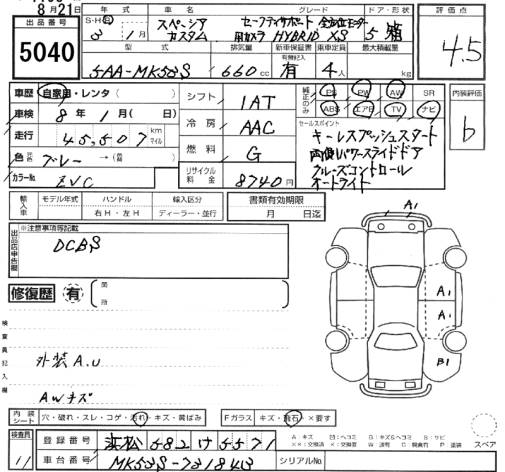 8月21日
出品番号 5040
年式 車名 グレード ドア・形状 評価点
S・H・R 3 1月 スペーシア カスタム セーフティサポート 全方位モニター 用カメラ HYBRID XS 5 箱 4.5
型式 排気量 新車保証書 乗車定員 最大積載量
5AA-MK53S 660cc 有 4人 kg
有償記入
車歴 自家用・レンタ シフト 1AT 純正のみ PS PW AW SR 内装評価
車検 8年1月(日) ABS エアB TV ナビ b
走行 45,507 km マイル 冷房 AAC セールスポイント
色 元色 グレー →(替) 燃料 G
カラーNo. ZVC リサイクル料金 8740円
キーレスプッシュスタート
両側パワースライドドア
クルーズコントロール
オートライト
輸入車 モデル年式 ハンドル 輸入区分 書類有効期限
右H・左H ディーラー・並行 月 日迄
出品店申告欄 ※注意事項等記載
DCBS
A1
修復歴 有 箇所
A1
A1
B1
検査員記入欄
外装A.U
AWキズ
内装シート 穴・破れ・スレ・コゲ・汚れ・キズ・黄ばみ Fガラス キズ・飛石・×要す
検査員 11 登録番号 浜松582け5571 スペア
車台番号 MK53S-731843 シリアルNo.